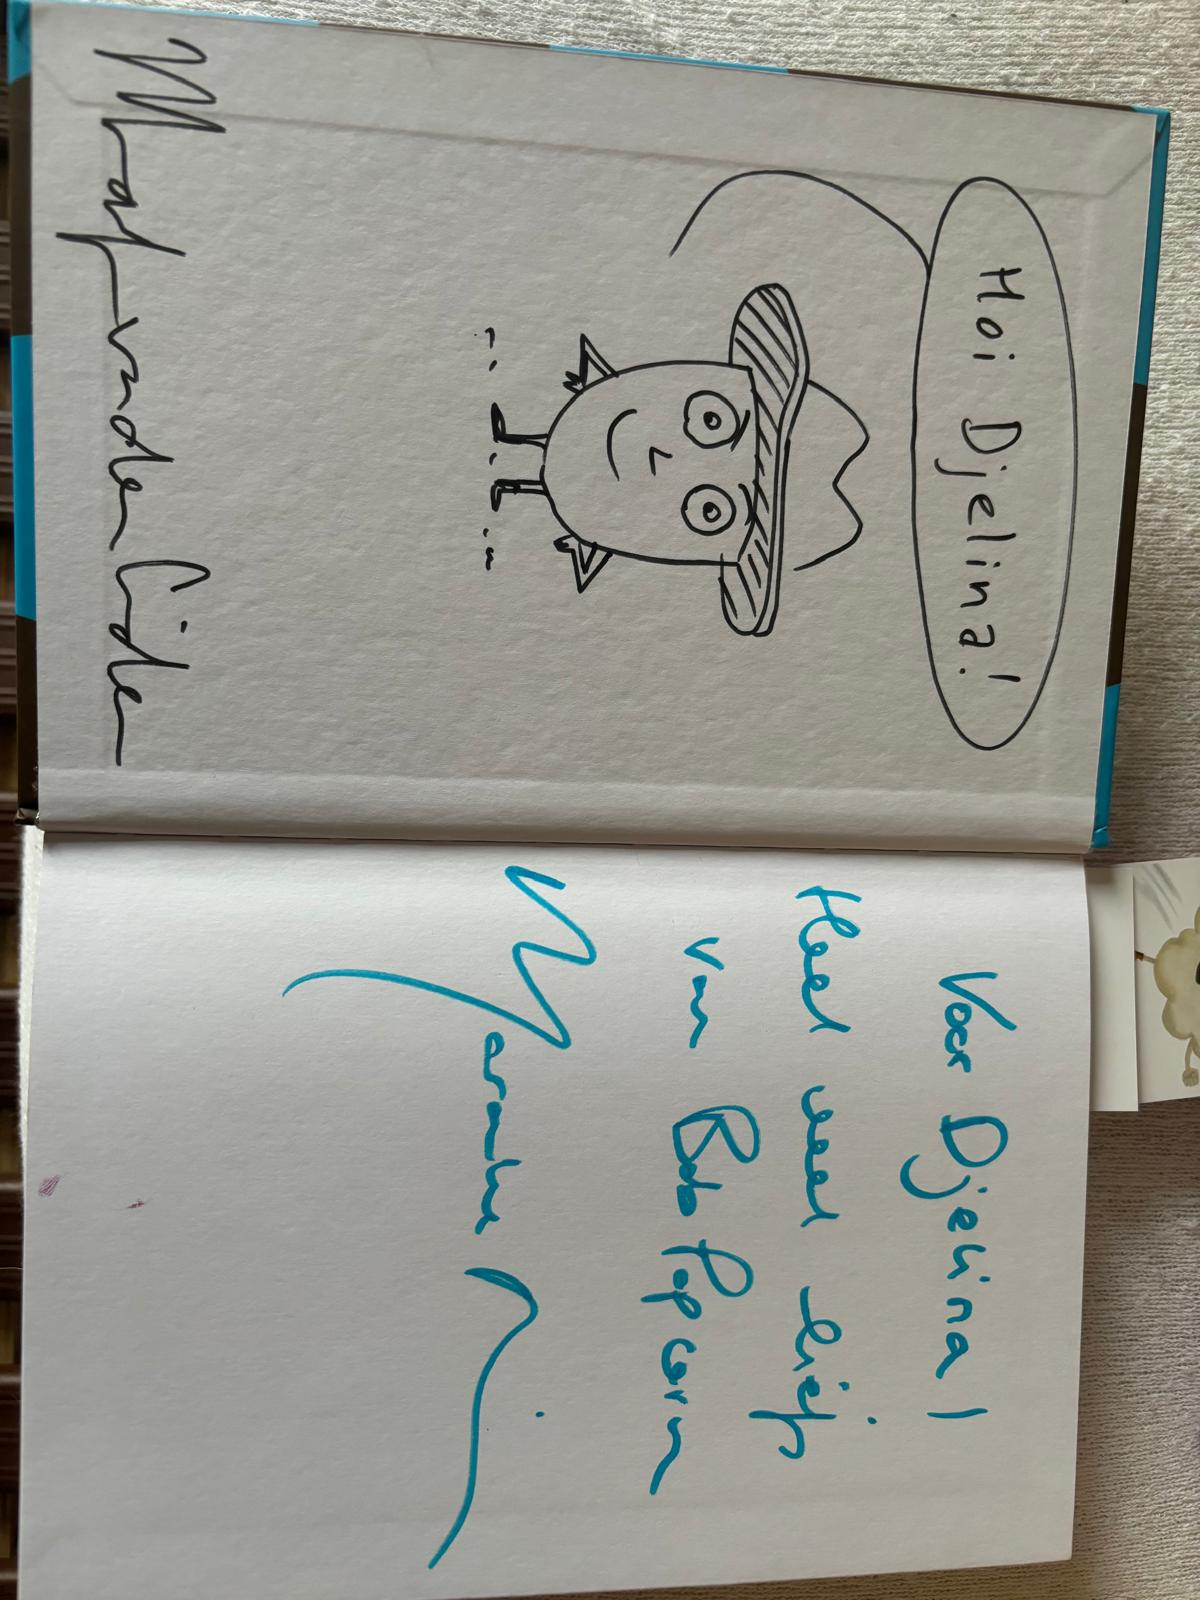 Hoi Djelina!
Mark van der Linden
Voor Djelina!
Heel veel liefs
van Bob Popcorn
Maranke